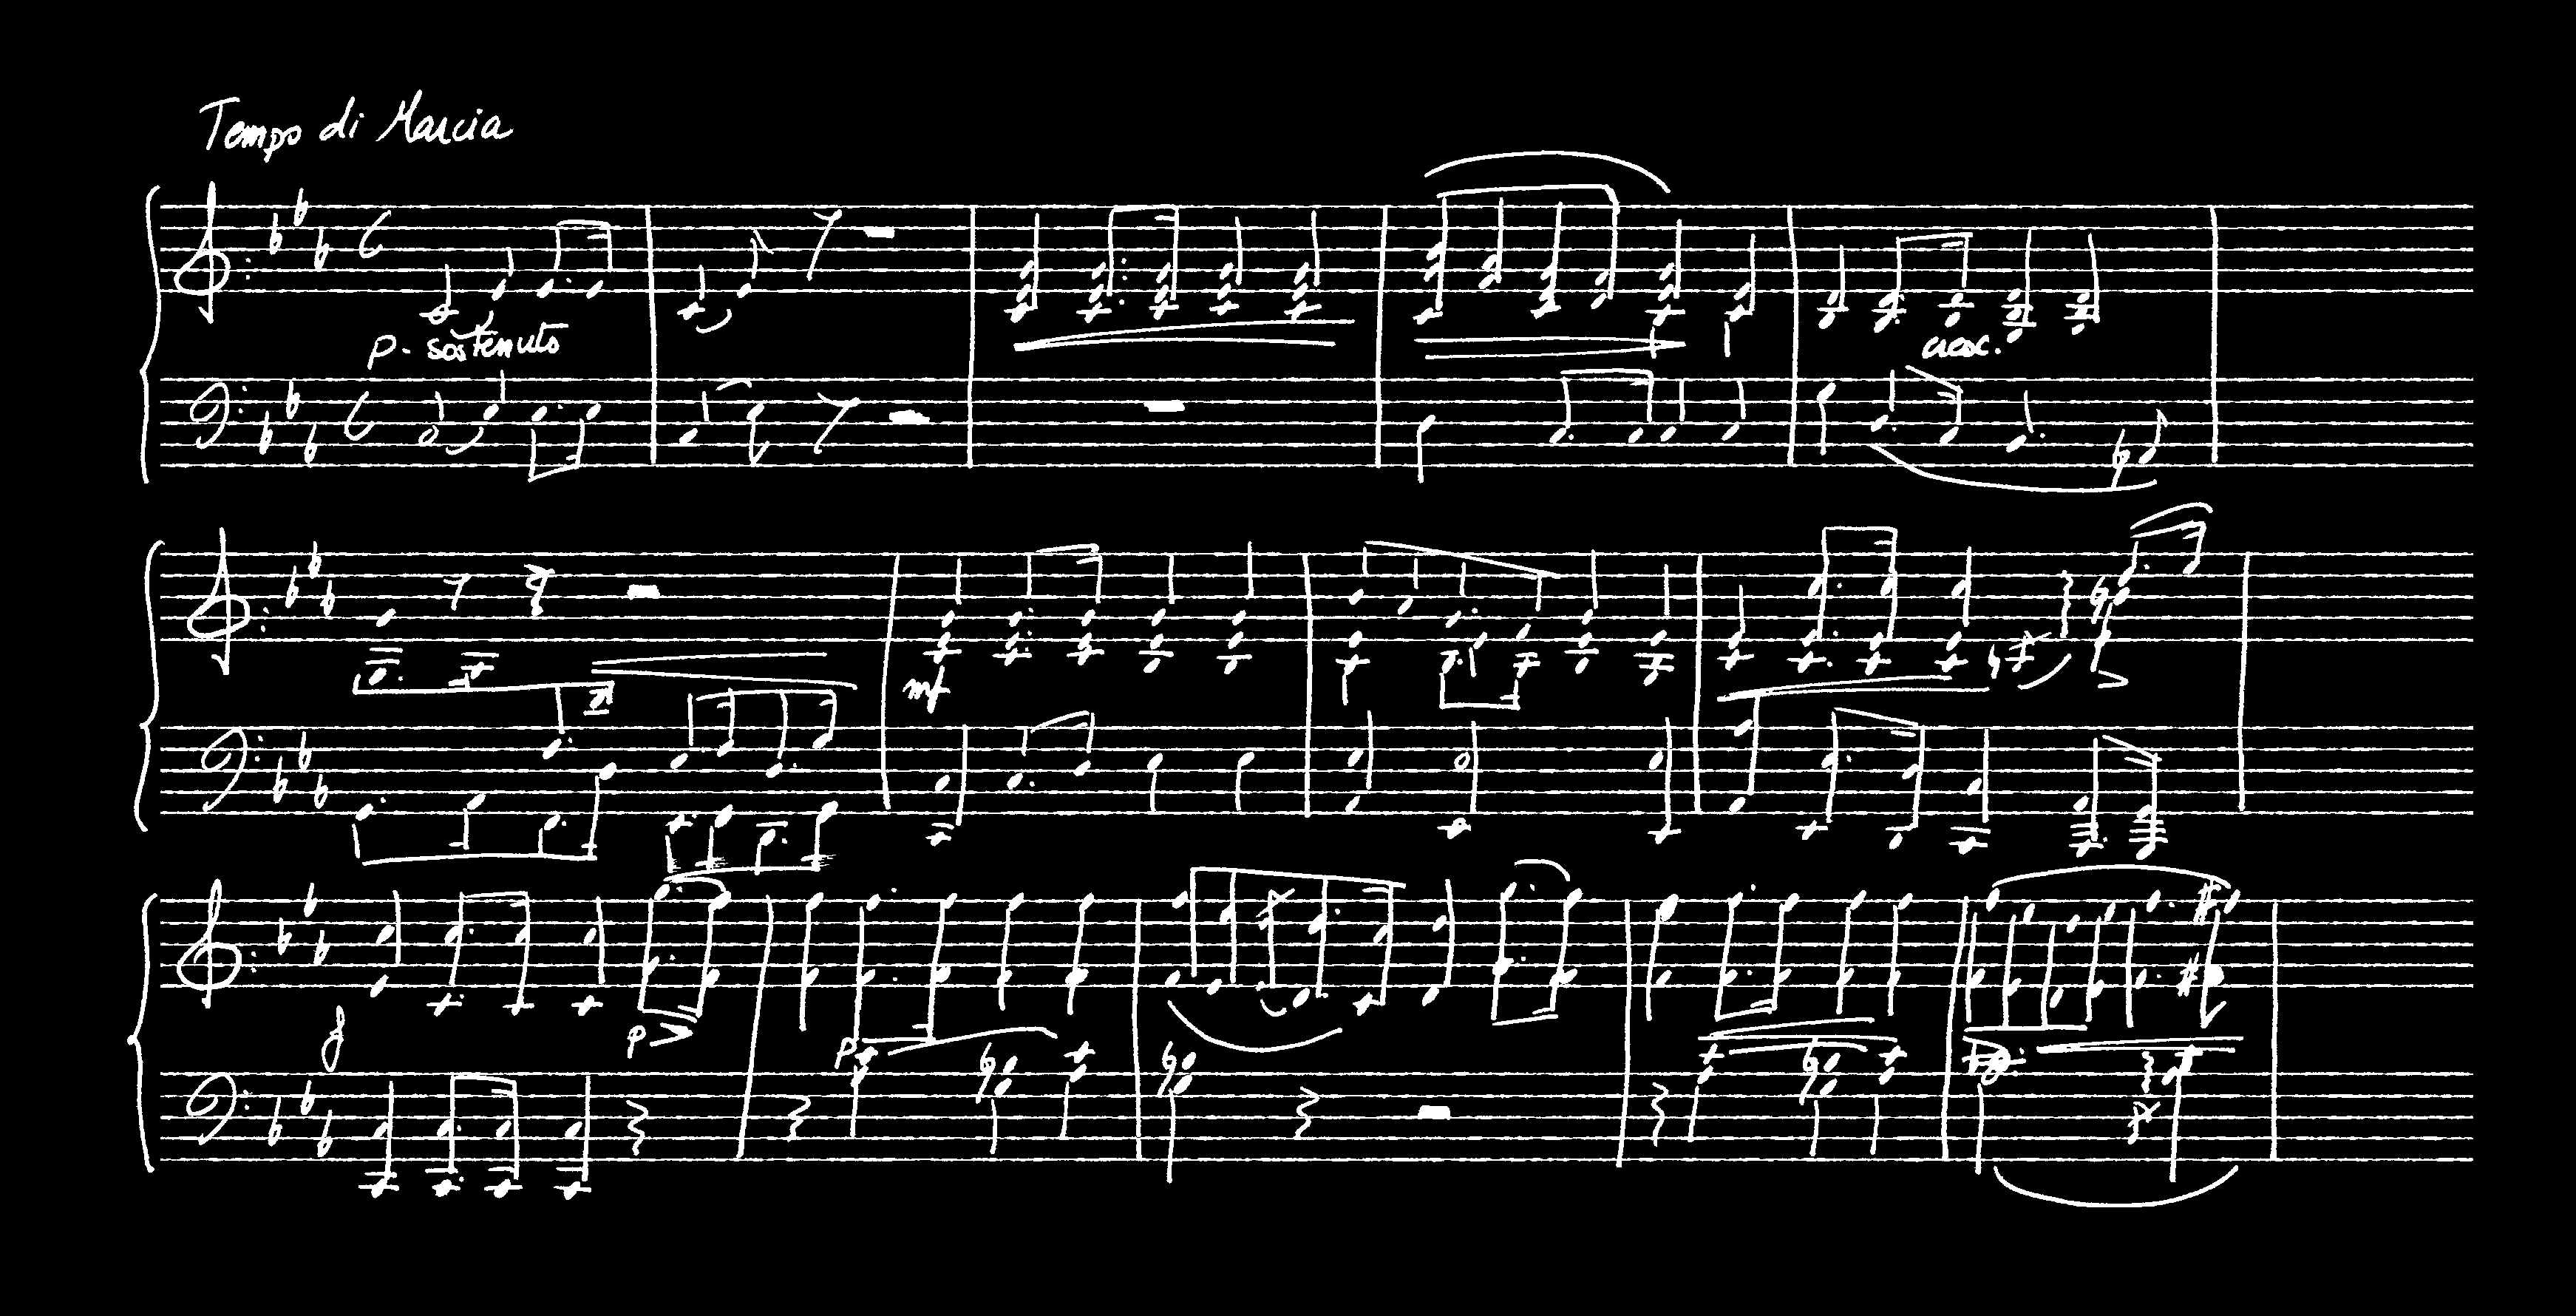 Tempo di Marcia
p - sostenuto
cresc.
mf
f
p
p